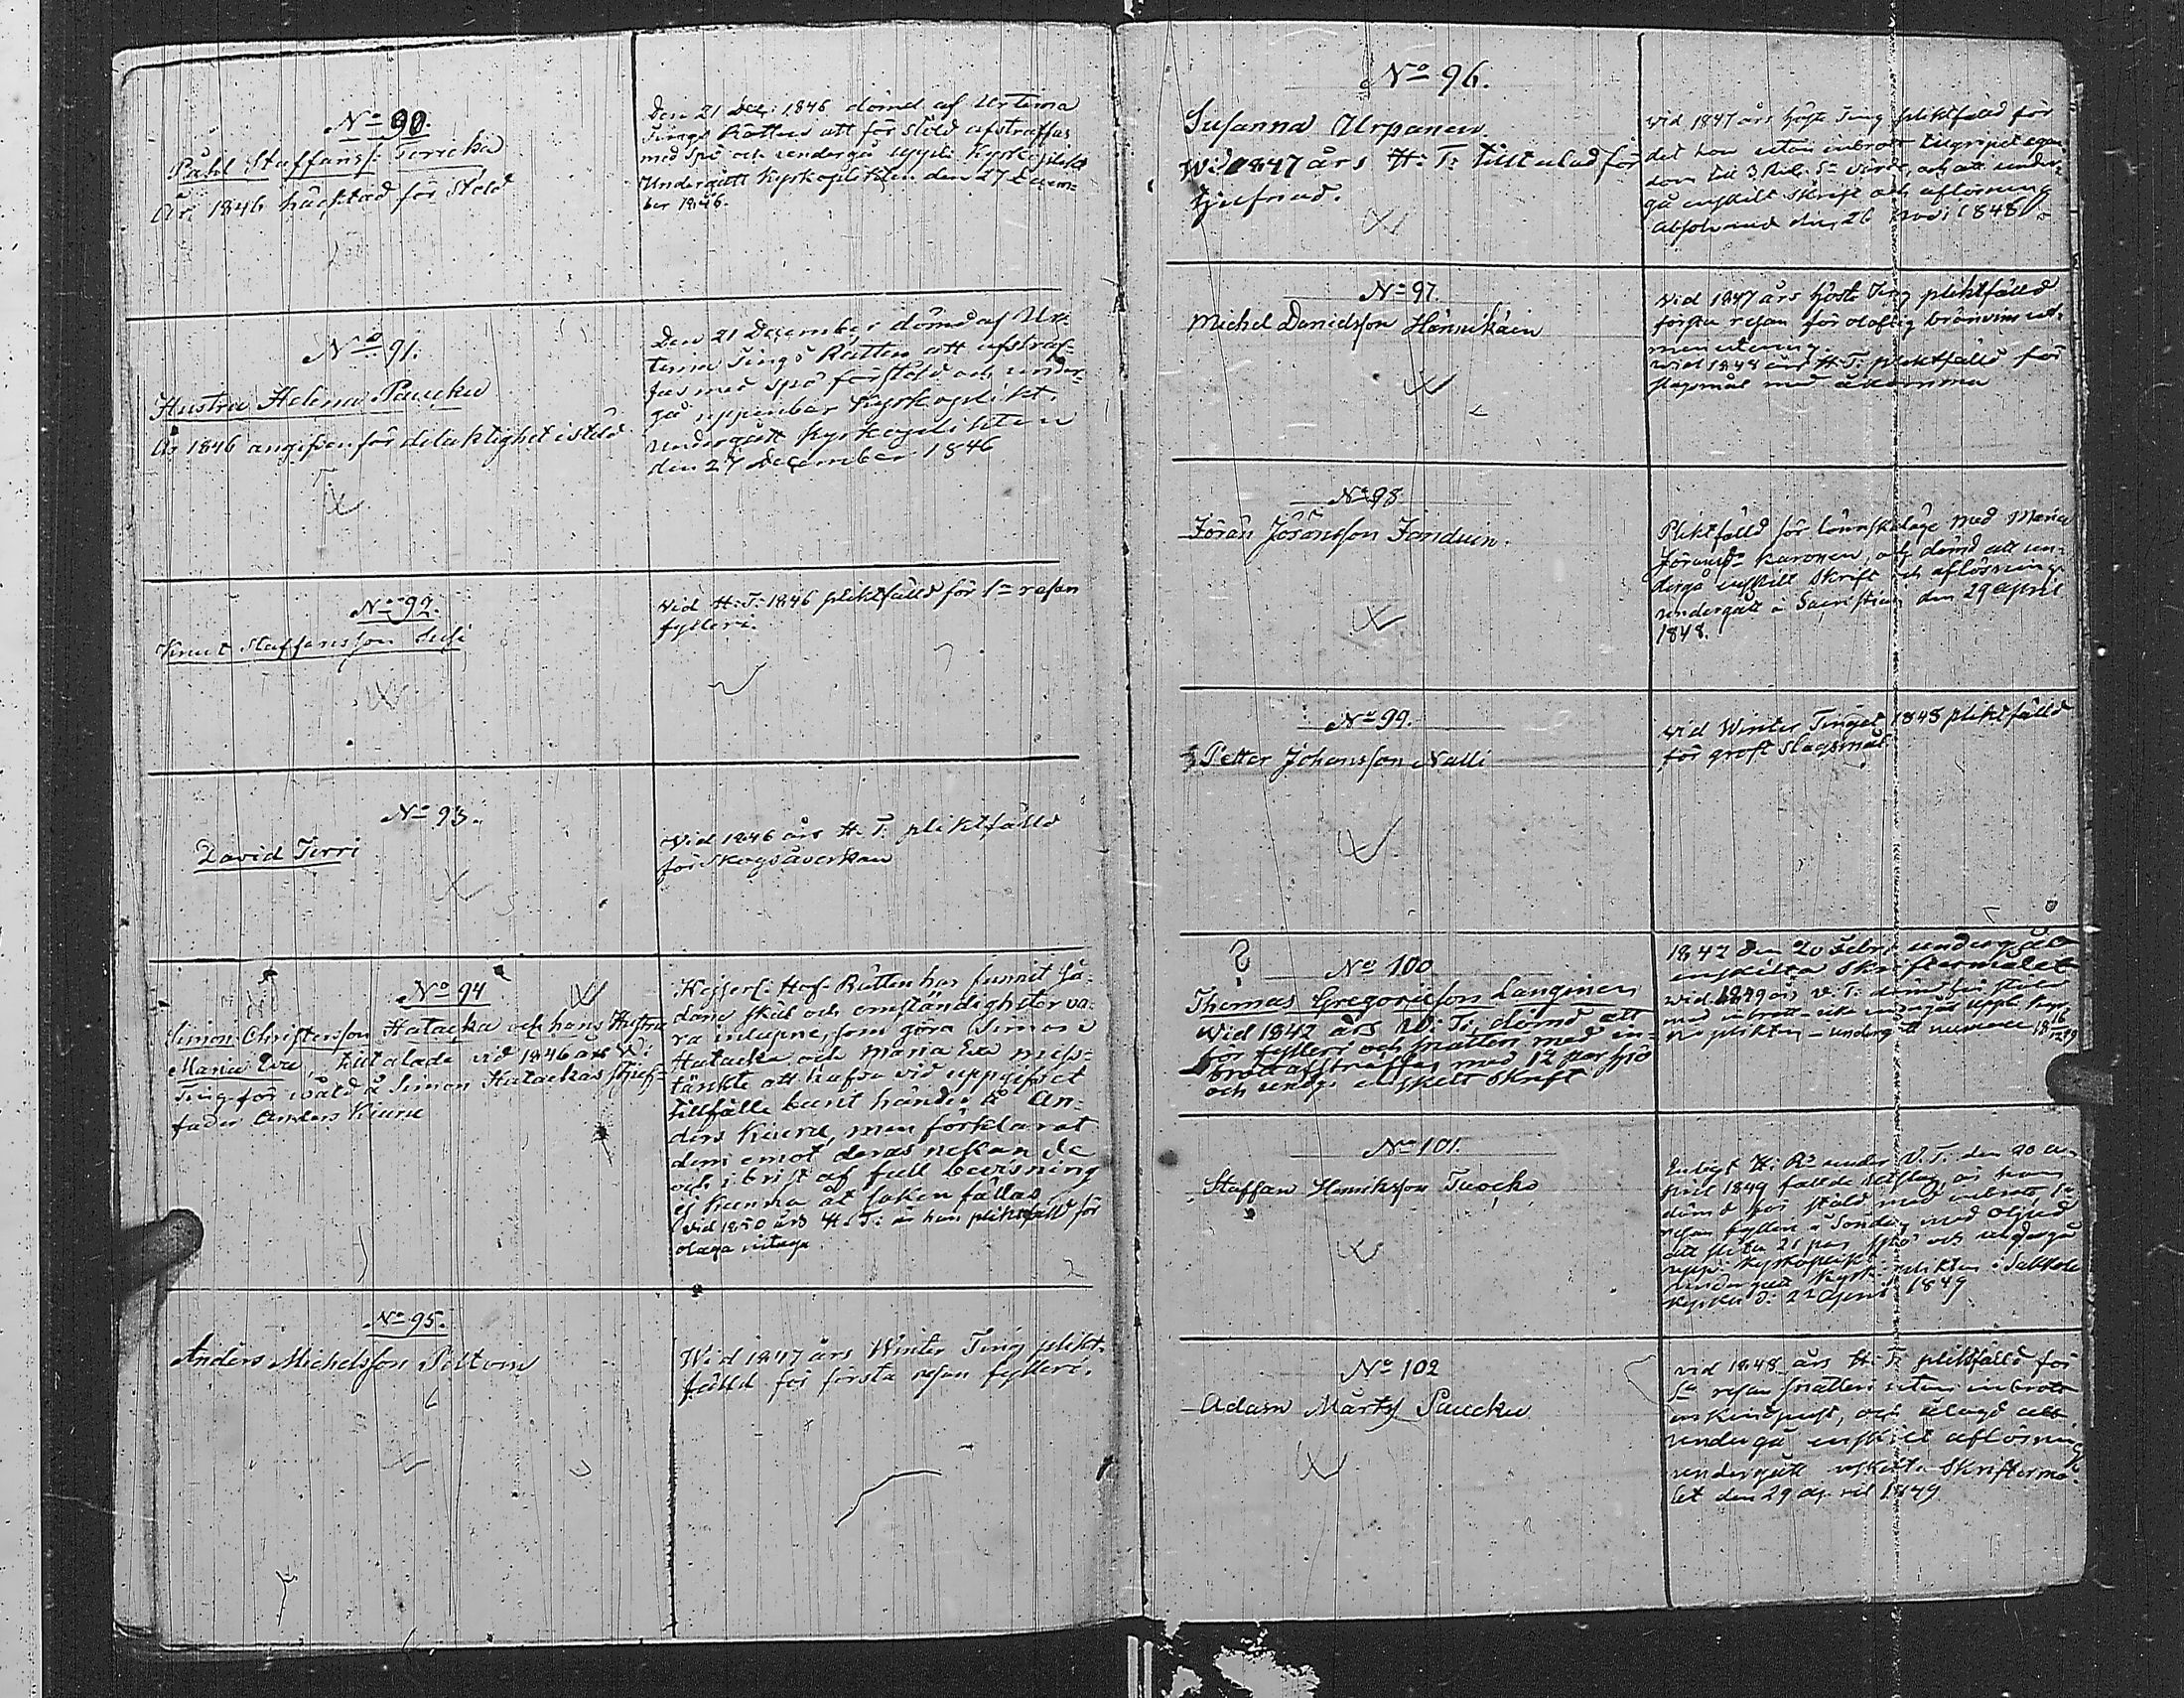 No 90.
Påhl Staffanss: Terricka
År 1846 häcktad för Stöld
Den 21 Dec: 1846 dömd af Urtima
Tings Rätten att för stöld afstraffas
med Spö och undergå uppb: Kyrkoplikt
Undergått Kyrkoplikten den 27 Decem-
ber 1846.
No 91.
Hustru Helena Paucku
År 1846 angifven för delaktighet i stöld
Den 21 December dömd af Ur-
tima Tings Rätten att afstraf-
fas med Spö för stöld och under-
gå uppenbar Kyrkoplikt.
Undergått Kyrkoplikten
den 27 December 1846
No 92.
Knut Staffansson Susi
Vid H: T: 1846 pliktfälld för 1=a resan
fylleri.
No 93.
David Terri
Vid 1846 års H. T. pliktfälld
för Skogsåverkan
No 94
Simon Christersson Hatacka och hans Hustru
Maria Eva, tilltalade vid 1846 års V:
Ting för wåld å Simon Hatackas styf-
fader Anders Kiuru
Kejserl: Hof Rätten har funnit så-
dane skäl och omständigheter va-
ra inlupne, som göra Simon
Hatacka och Maria Eva miss-
tänkte att hafva vid uppgifvet
tillfälle burit händer å An-
ders Kiuru, men förklarat
dem emot deras nekande
och i brist af full bevisning
ej kunna åt saken fällas
Vid 1850 års H. T: är han pliktfälld för
olaga intage.
No 95.
Anders Michelsson Poltom
Wid 1847 års Winter Ting plikt-
fälld för första resan fylleri.
No 96.
Susanna Urpanen.
Wid 1847 års H: T: tilltalad för
tjufnad.
Vid 1847 års höste Ting pliktfälld för
det hon utan inbrott tillgripit egen-
dom till 3 Rub. värde, och att under-
gå enskilt Skrift och aflösning
Absolverad den 26 Nov: 1848
No 97
Michel Danielsson Hännikäin
Vid 1847 års höste Ting pliktfälld
första resan för olaflig brännvins ut-
menutering.
Wid 1848 års H-T: pliktfälld för
slagsmål med åkomma
No 98
Jöran Jöransson Janduin.
Pliktfälld för lönnskaläge med Maria
Jöransdr Karonen, och dömd att un-
dergå enskilt Skrift och aflösning
undergått i Sacristian den 29 April
1848.
No 99.
Petter Johansson Nalli
Vid Winter Tinget 1848 pliktfälld
för groft Slagsmål
No 100
Thomas Gregoriisson Langinen
Wid 1847 års W: T: dömd att
för fylleri och snatteri med in-
brott afstraffas med 12 par spö
och underg: enskilt Skrift
1847 den 20 Febr: undergått
enskilta Skriftermålet
Wid 1849 års V. T: dömd för stöld
med inbrott
No 101.
Staffan Henriksson Tuocko
Enligt H: Rs under V. T: den 20 A-
pril 1849 fällde utslag är han
dömd för stöld med inbrott, 1a
resan fylleri å Söndag med oljud
att slita 21 par spö och undergå
uppb: Kyrkoplikt.
undergått Kyrkoplikten i Sakkola
Kyrka d: 22 April 1849
No 102
Adam Märtss Paucku
Vid 1848 års H: T: pliktfälld för
1a resan snatteri utan inbrott
och ålagd att
undergå enskilt aflösning
undergått enskilta Skriftermå-
let den 29 April 1849